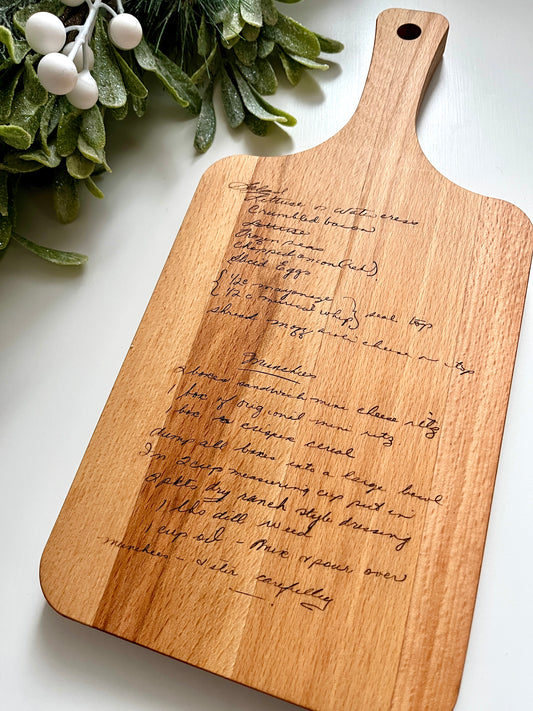 Salad
Lettuce or Water cress
Crumbled bacon
Lettuce
Frozen peas
Chopped onion (red)
Sliced Eggs
{ 1/2 c mayonnaise }
{ 1/2 c miracle whip } seal top
shread mozz cheese on top
Munchies
2 boxes sandwich mini cheese ritz
1 box of original mini ritz
1 box crispix cereal
dump all boxes into a large bowl
In 2 cup measuring cup put in
2 pkts dry ranch style dressing
1 tbs dill weed
1 cup oil - Mix & pour over
munchies - & stir carefully